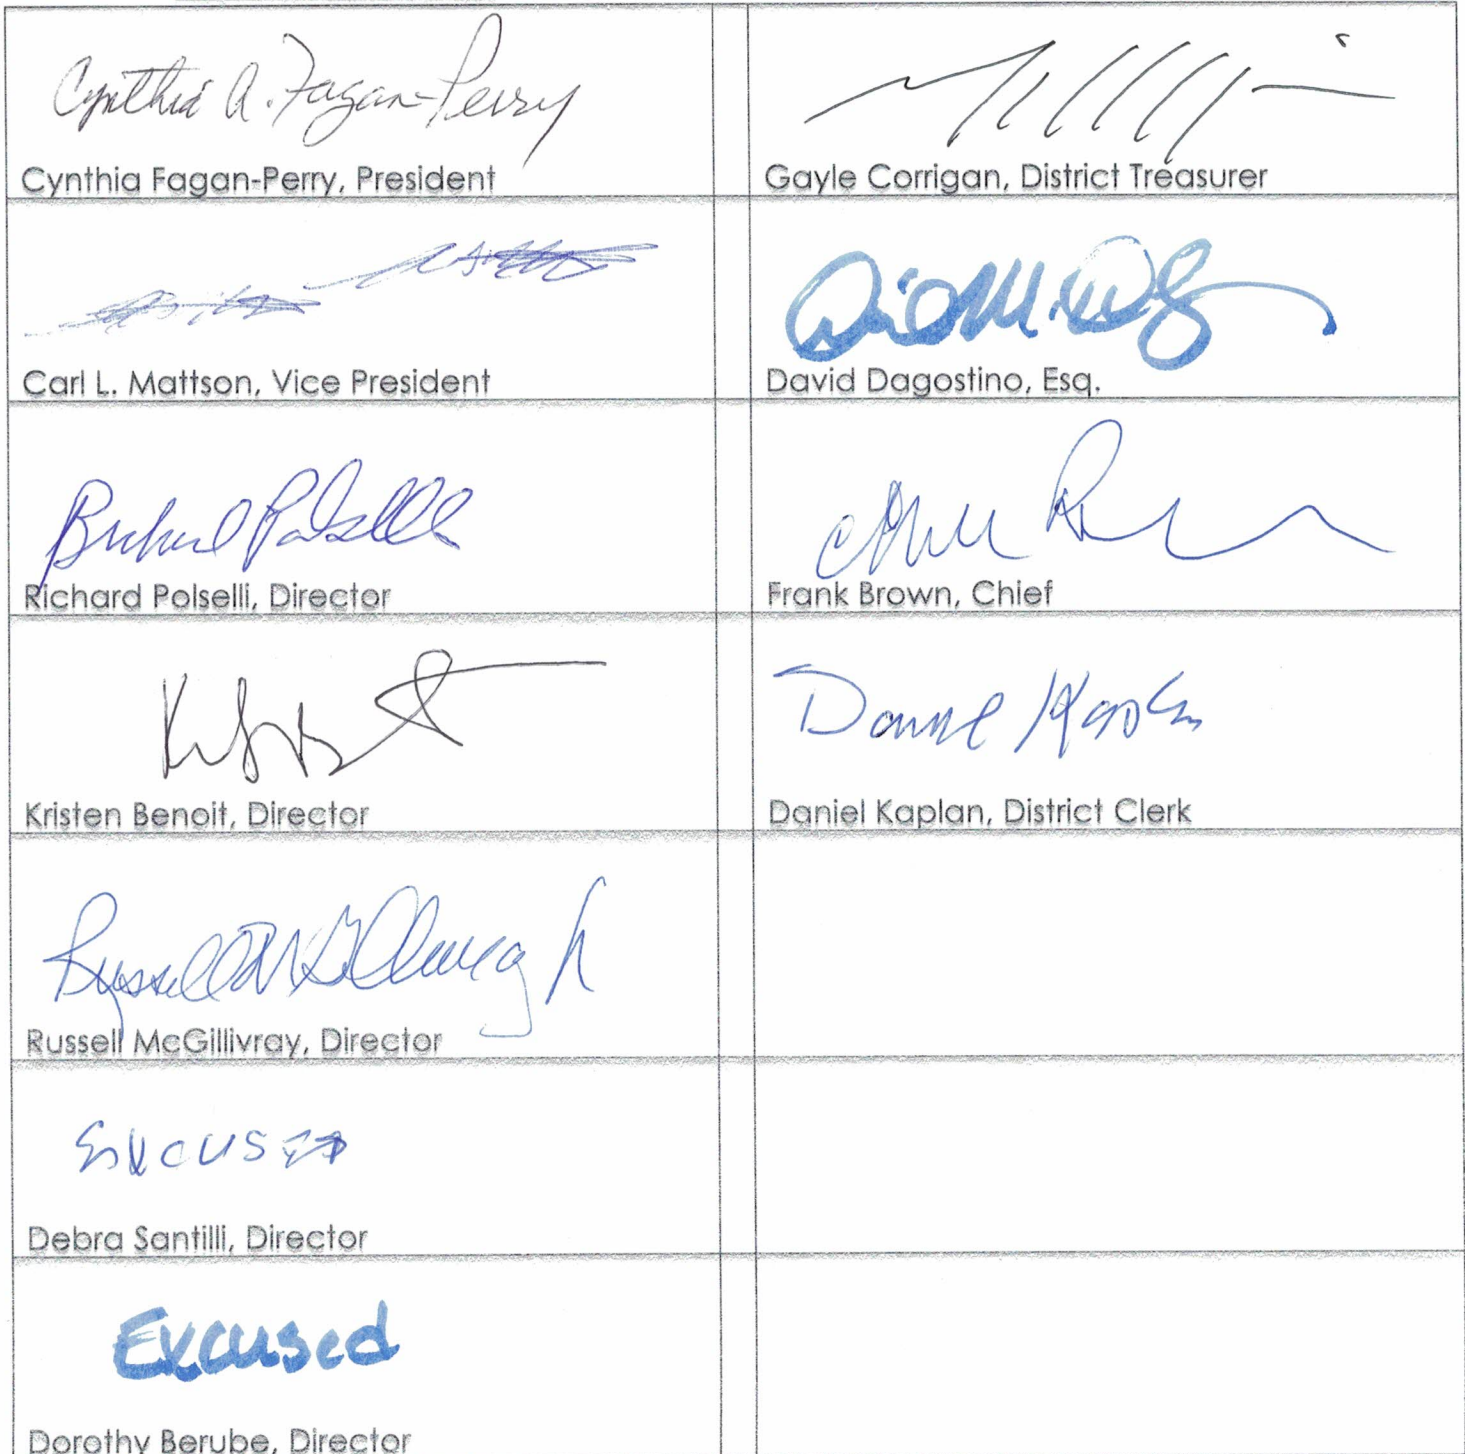 Cynthia A. Fagan-Perry
Cynthia Fagan-Perry, President
Gayle Corrigan, District Treasurer
Carl L. Mattson, Vice President
David Dagostino, Esq.
Richard Polselli
Richard Polselli, Director
Frank Brown, Chief
Kristen Benoit, Director
Daniel Kaplan
Daniel Kaplan, District Clerk
Russell McGillivray, Director
EXCUSED
Debra Santilli, Director
Excused
Dorothy Berube, Director